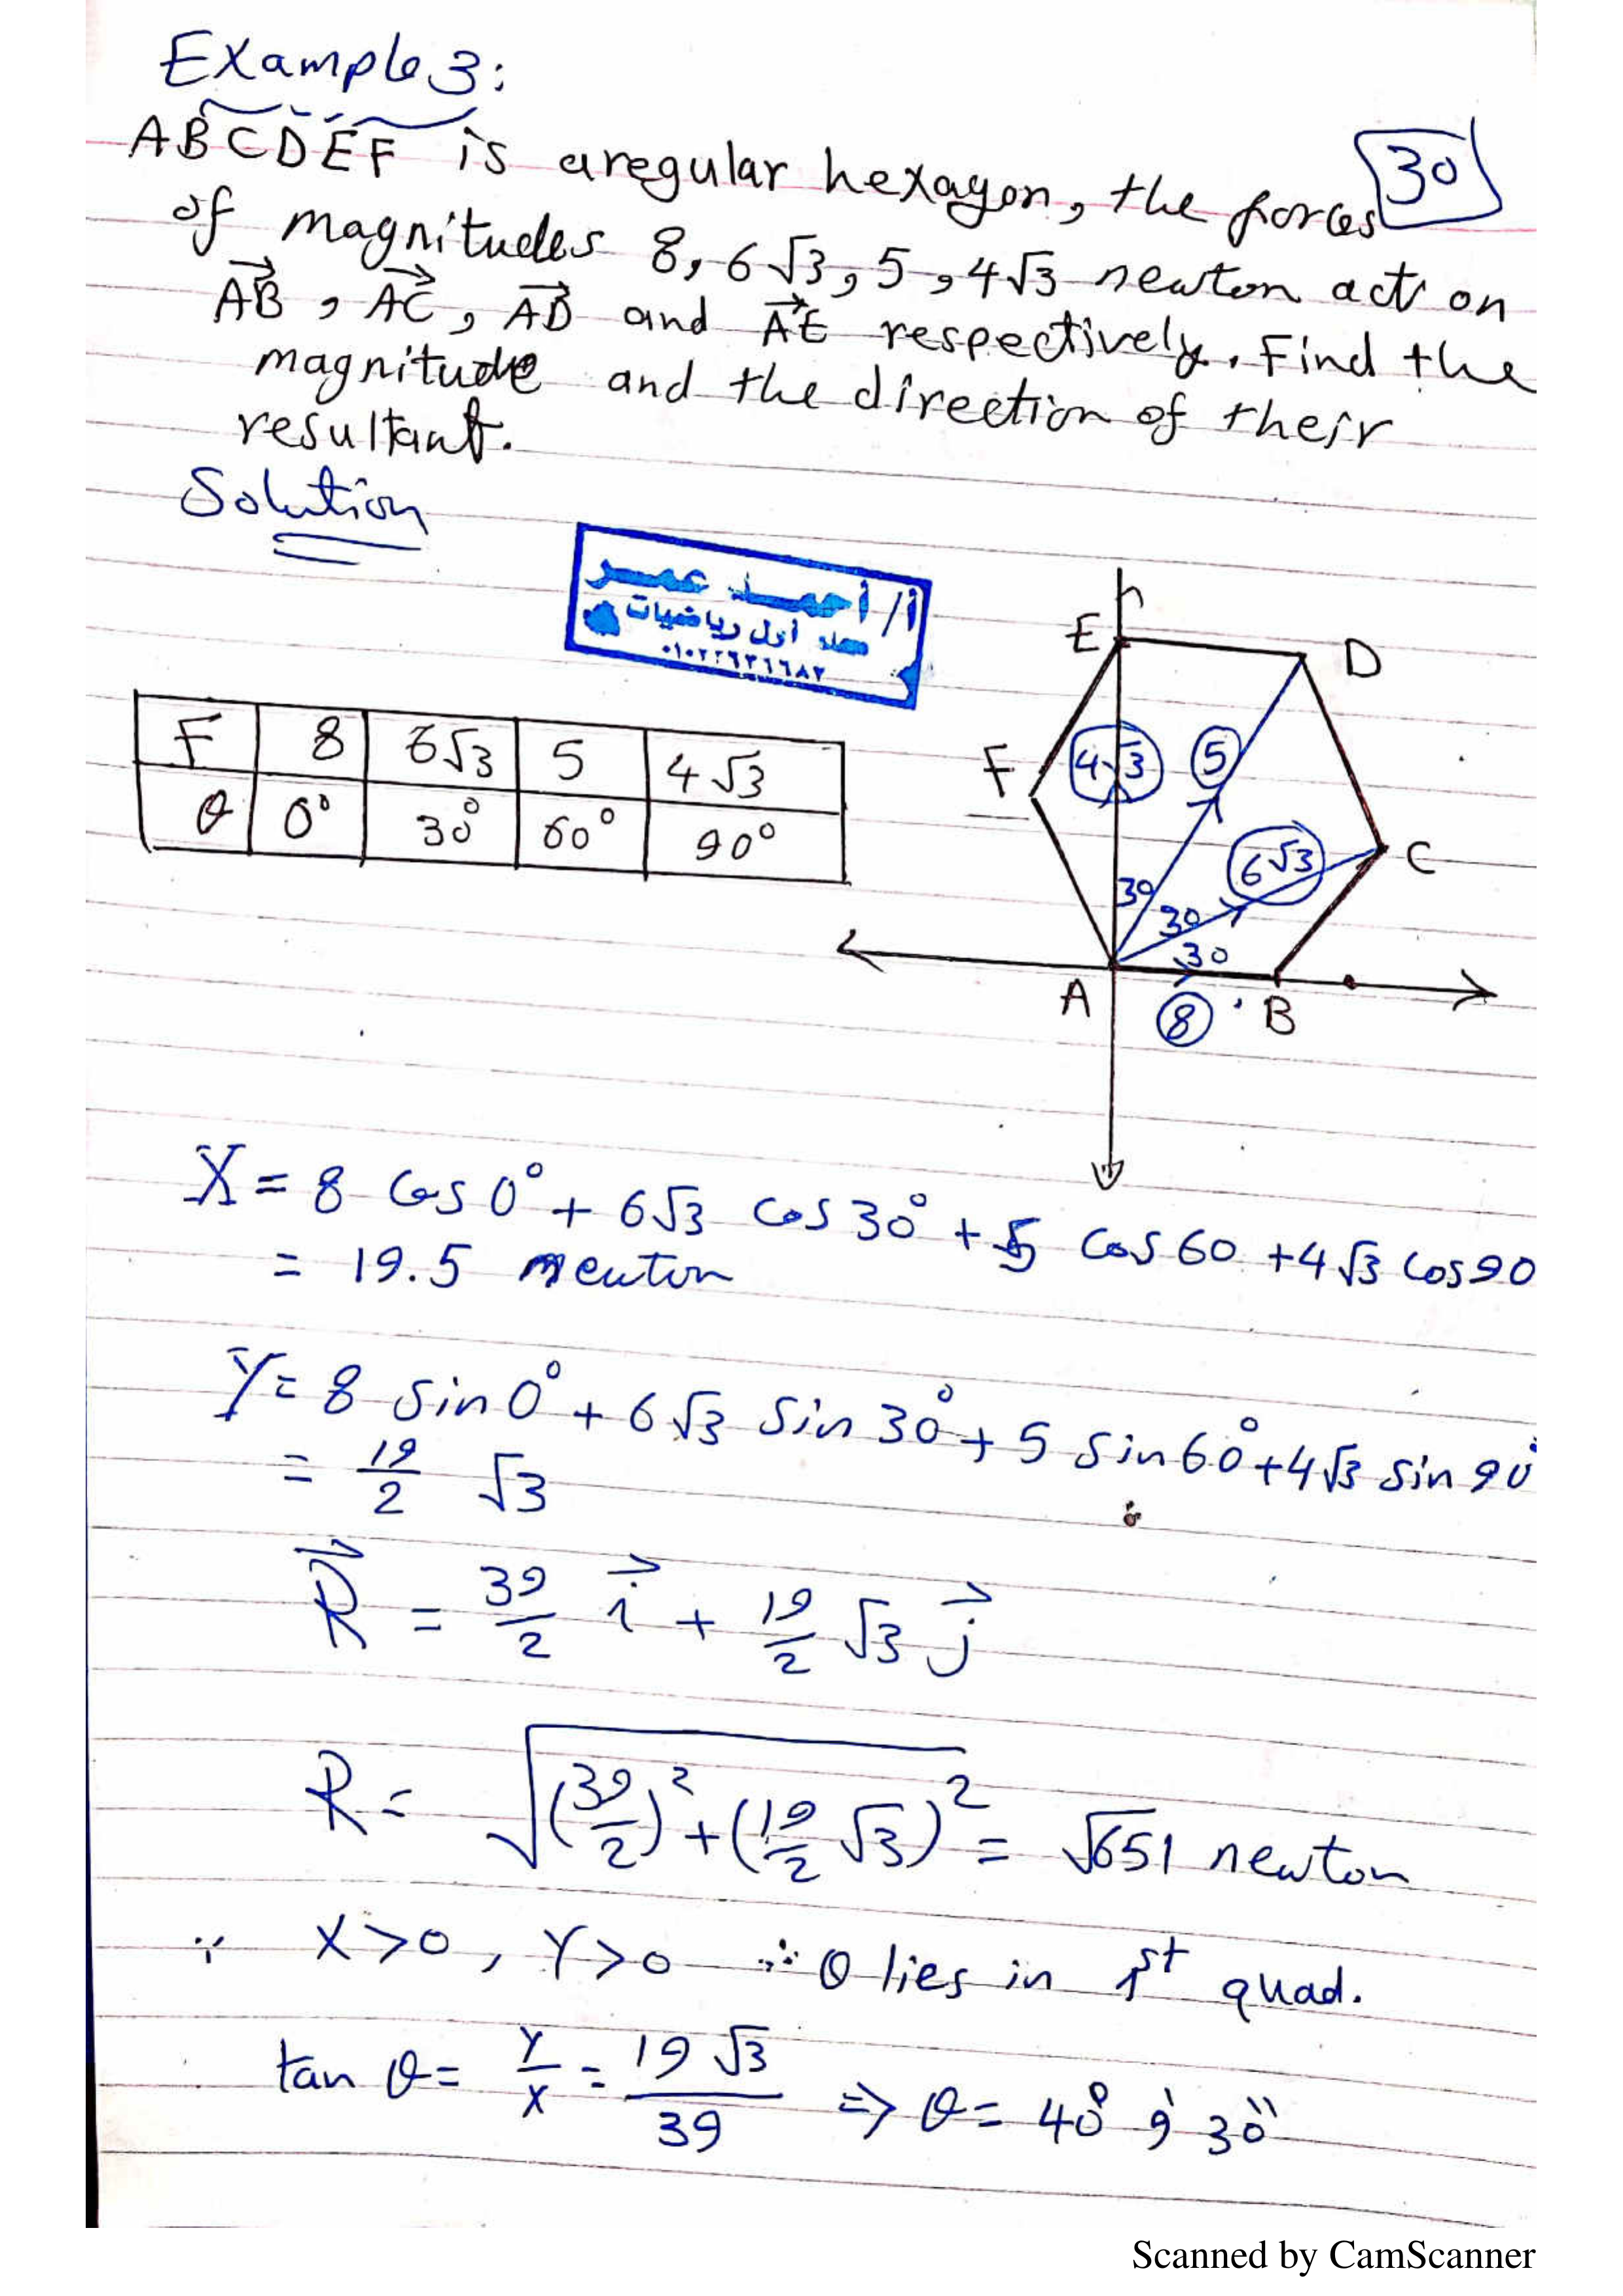 Example 3:
30
ABCDEF is a regular hexagon, the forces
of magnitudes 8, 6√3, 5, 4√3 newton act on
AB, AC, AD and AE respectively. Find the
magnitude and the direction of their
resultant.
Solution
أ/ أحمد عمر
معلم أول رياضيات
E
D
F 8 6√3 5 4√3
F
4√3
5
θ 0° 30° 60° 90°
6√3
C
30
30
30
A
8
B
X = 8 cos 0° + 6√3 cos 30° + 5 cos 60 + 4√3 cos 90
= 19.5 newton
Y = 8 sin 0° + 6√3 sin 30° + 5 sin 60° + 4√3 sin 90°
= 19/2 √3
R = 39/2 i + 19/2 √3 j
R = √((39/2)² + (19/2 √3)²) = √651 newton
∵ X > 0, Y > 0 ∴ θ lies in 1st quad.
tan θ = Y/X = 19√3/39 ⇒ θ = 40° 9' 30"
Scanned by CamScanner